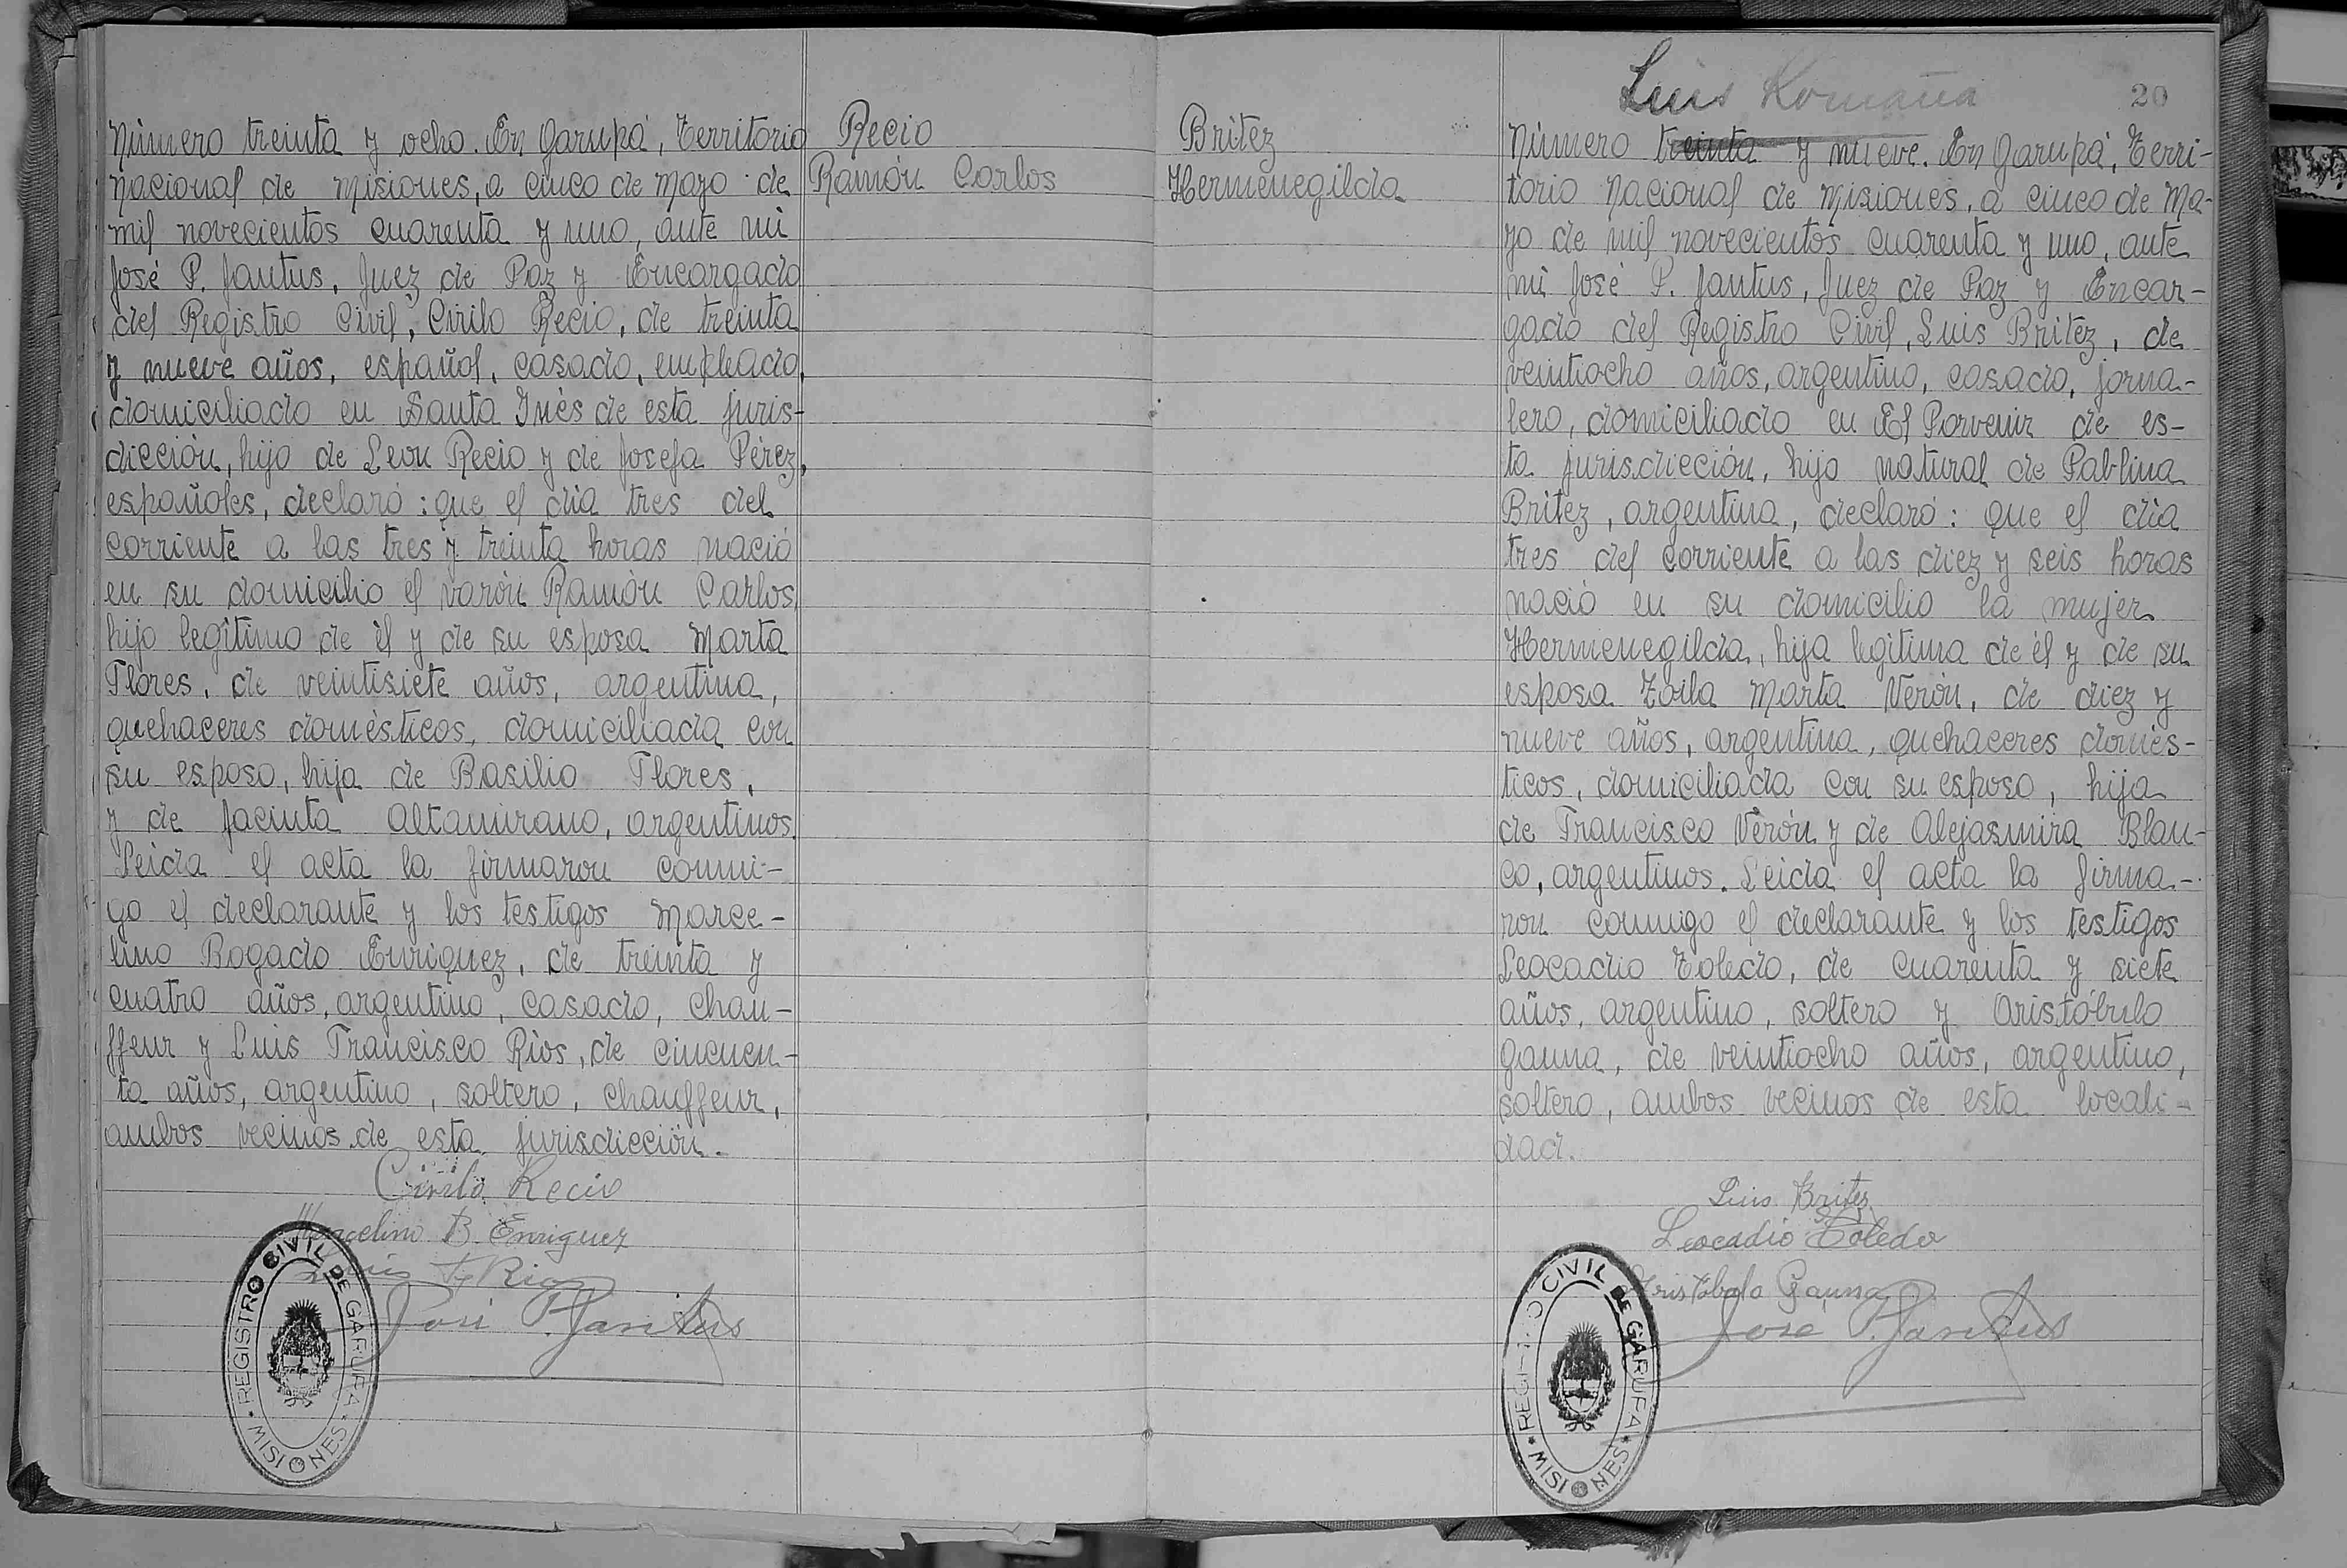 Número treinta y ocho. En Garupá, Territorio
nacional de Misiones, a cinco de mayo de
mil novecientos cuarenta y uno, ante mi
José P. Jantus, Juez de Paz y Encargado
del Registro Civil, Cirilo Recio, de treinta
y nueve años, español, casado, empleado,
domiciliado en Santa Inés de esta juris-
dicción, hijo de Leon Recio y de Josefa Pérez,
españoles, declaró: que el dia tres del
corriente a las tres y treinta horas nació
en su domicilio el varón Ramón Carlos,
hijo legítimo de él y de su esposa Marta
Flores, de veintisiete años, argentina,
quehaceres domésticos, domiciliada con
su esposo, hija de Basilio Flores,
y de Jacinta Altamirano, argentinos.
Leida el acta la firmaron conmi-
go el declarante y los testigos Marce-
lino Bogado Enriquez, de treinta y
cuatro años, argentino, casado, chau-
ffeur y Luis Francisco Rios, de cincuen-
ta años, argentino, soltero, chauffeur,
ambos vecinos de esta jurisdicción.
Cirilo Recio
Marcelino B. Enriquez
Luis F. Rios
José P. Jantus
REGISTRO CIVIL DE GARUPA
MISIONES
Recio
Ramón Carlos
Britez
Hermenegilda
Luis Romaña
20
Número treinta y nueve. En Garupá, Terri-
torio nacional de Misiones, a cinco de Ma-
yo de mil novecientos cuarenta y uno, ante
mi José P. Jantus, Juez de Paz y Encar-
gado del Registro Civil, Luis Britez, de
veintiocho años, argentino, casado, jorna-
lero, domiciliado en El Porvenir de es-
ta jurisdicción, hijo natural de Pablina
Britez, argentina, declaró: que el dia
tres del corriente a las diez y seis horas
nació en su domicilio la mujer
Hermenegilda, hija legítima de él y de su
esposa Zoila Marta Verón, de diez y
nueve años, argentina, quehaceres domés-
ticos, domiciliada con su esposo, hija
de Francisco Verón y de Alejasmira Blan-
co, argentinos. Leida el acta la firma-
ron conmigo el declarante y los testigos
Leocadio Toledo, de cuarenta y siete
años, argentino, soltero y Aristóbulo
Gauna, de veintiocho años, argentino,
soltero, ambos vecinos de esta locali-
dad.
Luis Brites
Leocadio Toledo
Aristobulo Gauna
Jose P. Jantus
REGISTRO CIVIL DE GARUPA
MISIONES